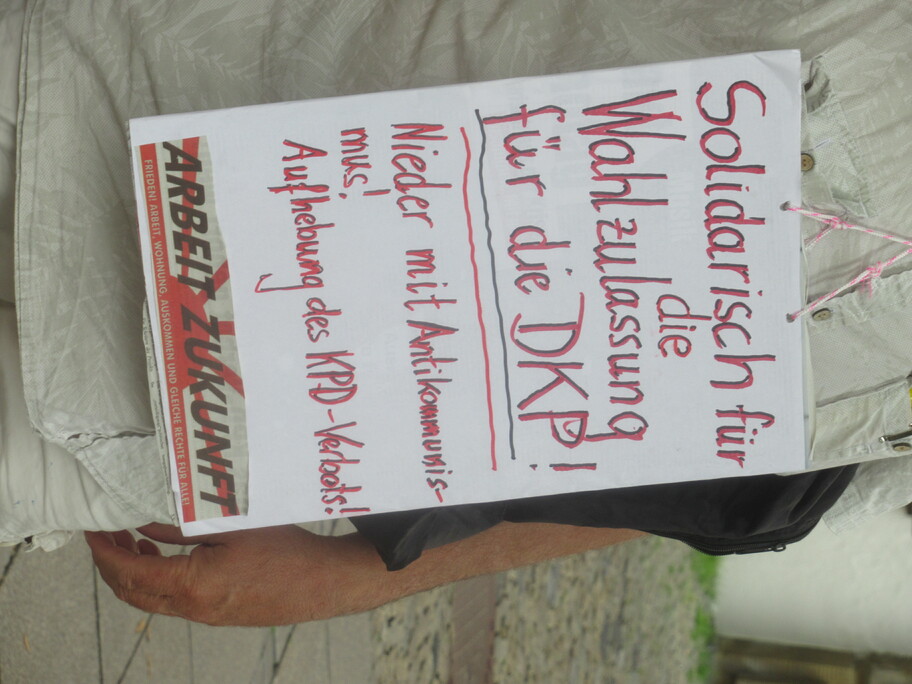 Solidarisch für
die
Wahlzulassung
für die DKP!
Nieder mit Antikommunis-
mus!
Aufhebung des KPD-Verbots!
ARBEIT ZUKUNFT
FRIEDEN! ARBEIT, WOHNUNG, AUSKOMMEN UND GLEICHE RECHTE FÜR ALLE!